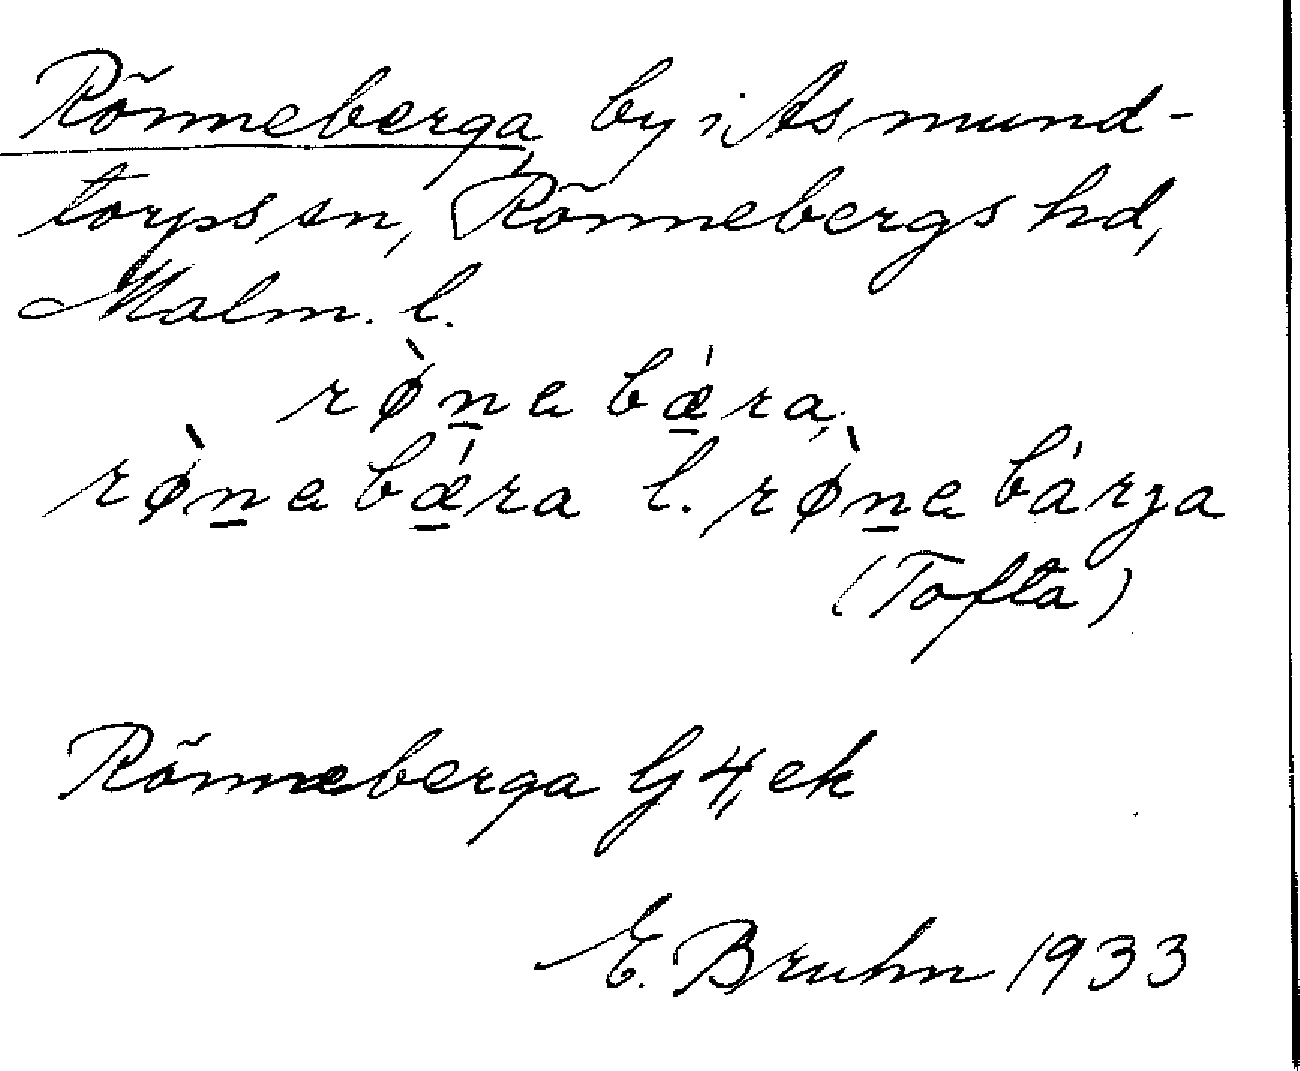 Rönneberga, by i Asmund-
torps sn, Rönnebergs hd,
Malm. l.
rø̀n̲ebǽ̲ra,
rø̀n̲ebǽ̲ra l. rø̀n̲ebárja
(Tofta)
Rönneberga G4, ek
E. Bruhn 1933